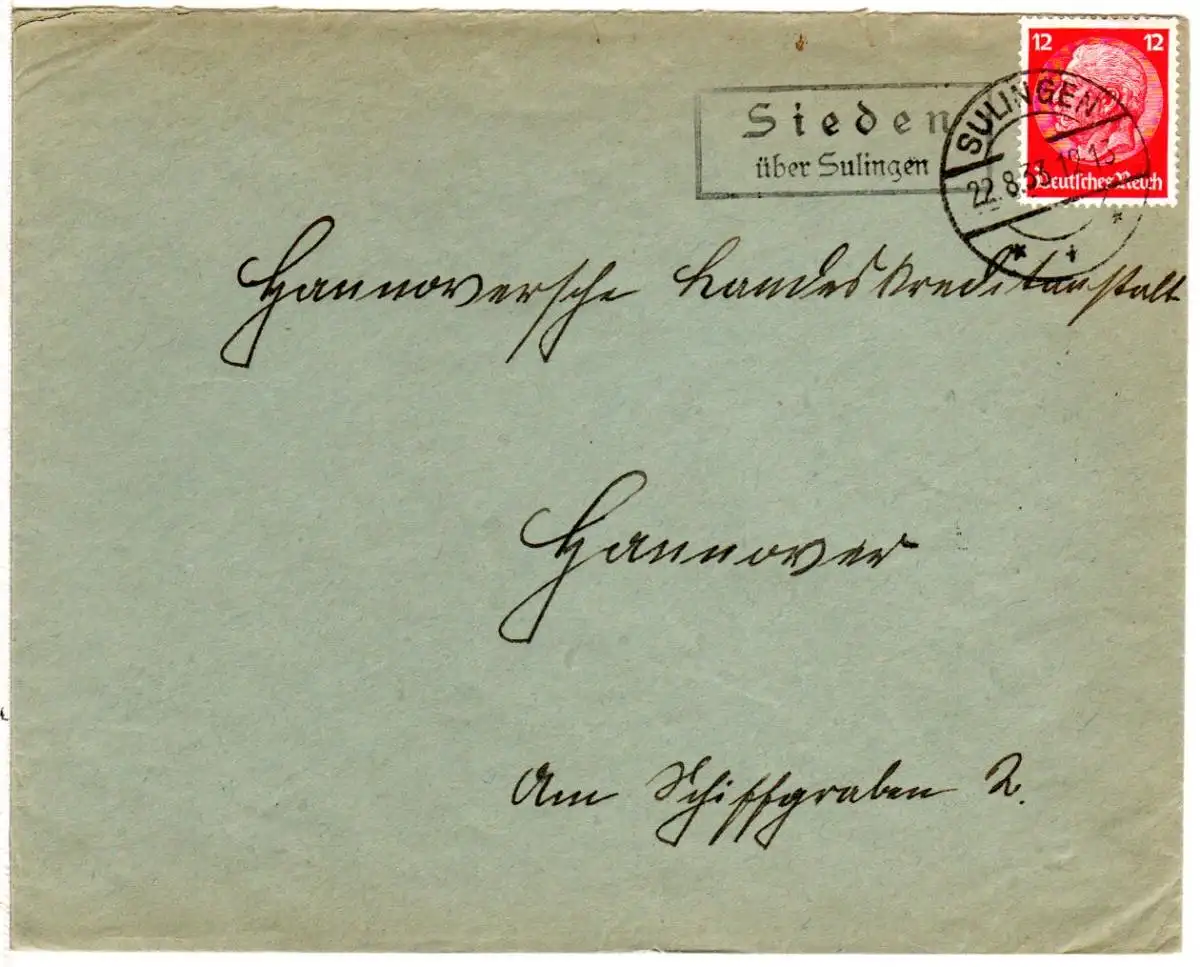 12 12
Sieden
über Sulingen
SULINGEN
22.8.33.12-13
Deutsches Reich
Hannoversche Landeskreditanstalt
Hannover
Am Schiffgraben 2.